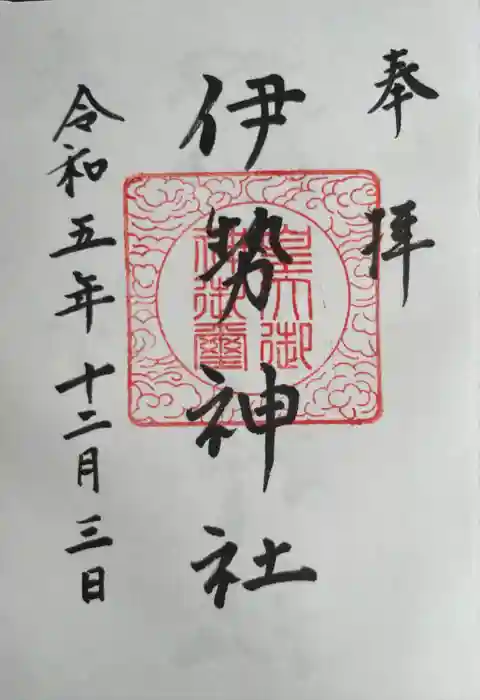 奉拝
伊勢神社
令和五年十二月三日